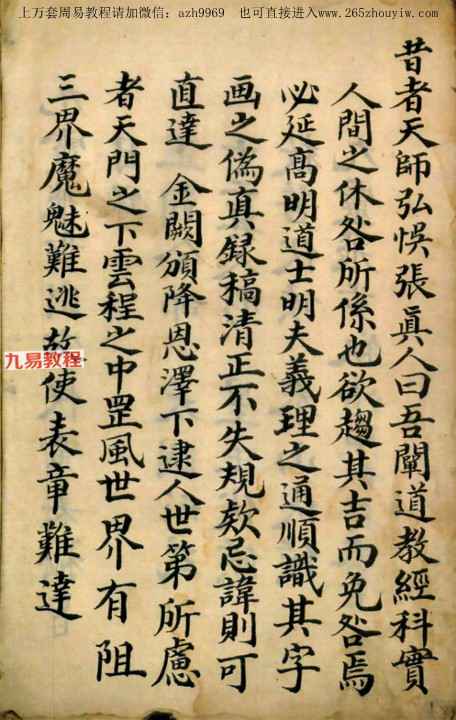 上万套周易教程请加微信：azh9969 也可直接进入www.265zhouyiw.com
昔者天師弘悮張眞人曰吾闡道教經科實
人間之休咎所係也欲趨其吉而免咎焉
必延髙明道士明夫義理之通順識其字
画之偽真録稿清正不失規欵忌諱則可
直達 金闕頒降恩澤下逮人世第所慮
者天門之下雲程之中罡風世界有阻
三界魔魅難逃故使表章難達
九易教程